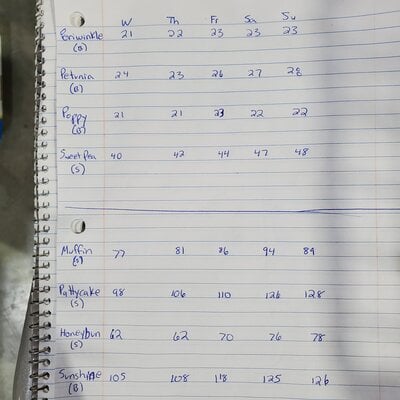 W Th Fr Sa Su
Periwinkle 21 22 23 23 23
(B)
Petunia 24 23 26 27 28
(B)
Poppy 21 21 23 22 22
(B)
Sweet Pea 40 42 44 47 48
(S)
Muffin 77 81 86 94 89
(S)
Pattycake 98 106 110 126 128
(S)
Honeybun 62 62 70 76 78
(S)
Sunshine 105 108 118 125 126
(B)